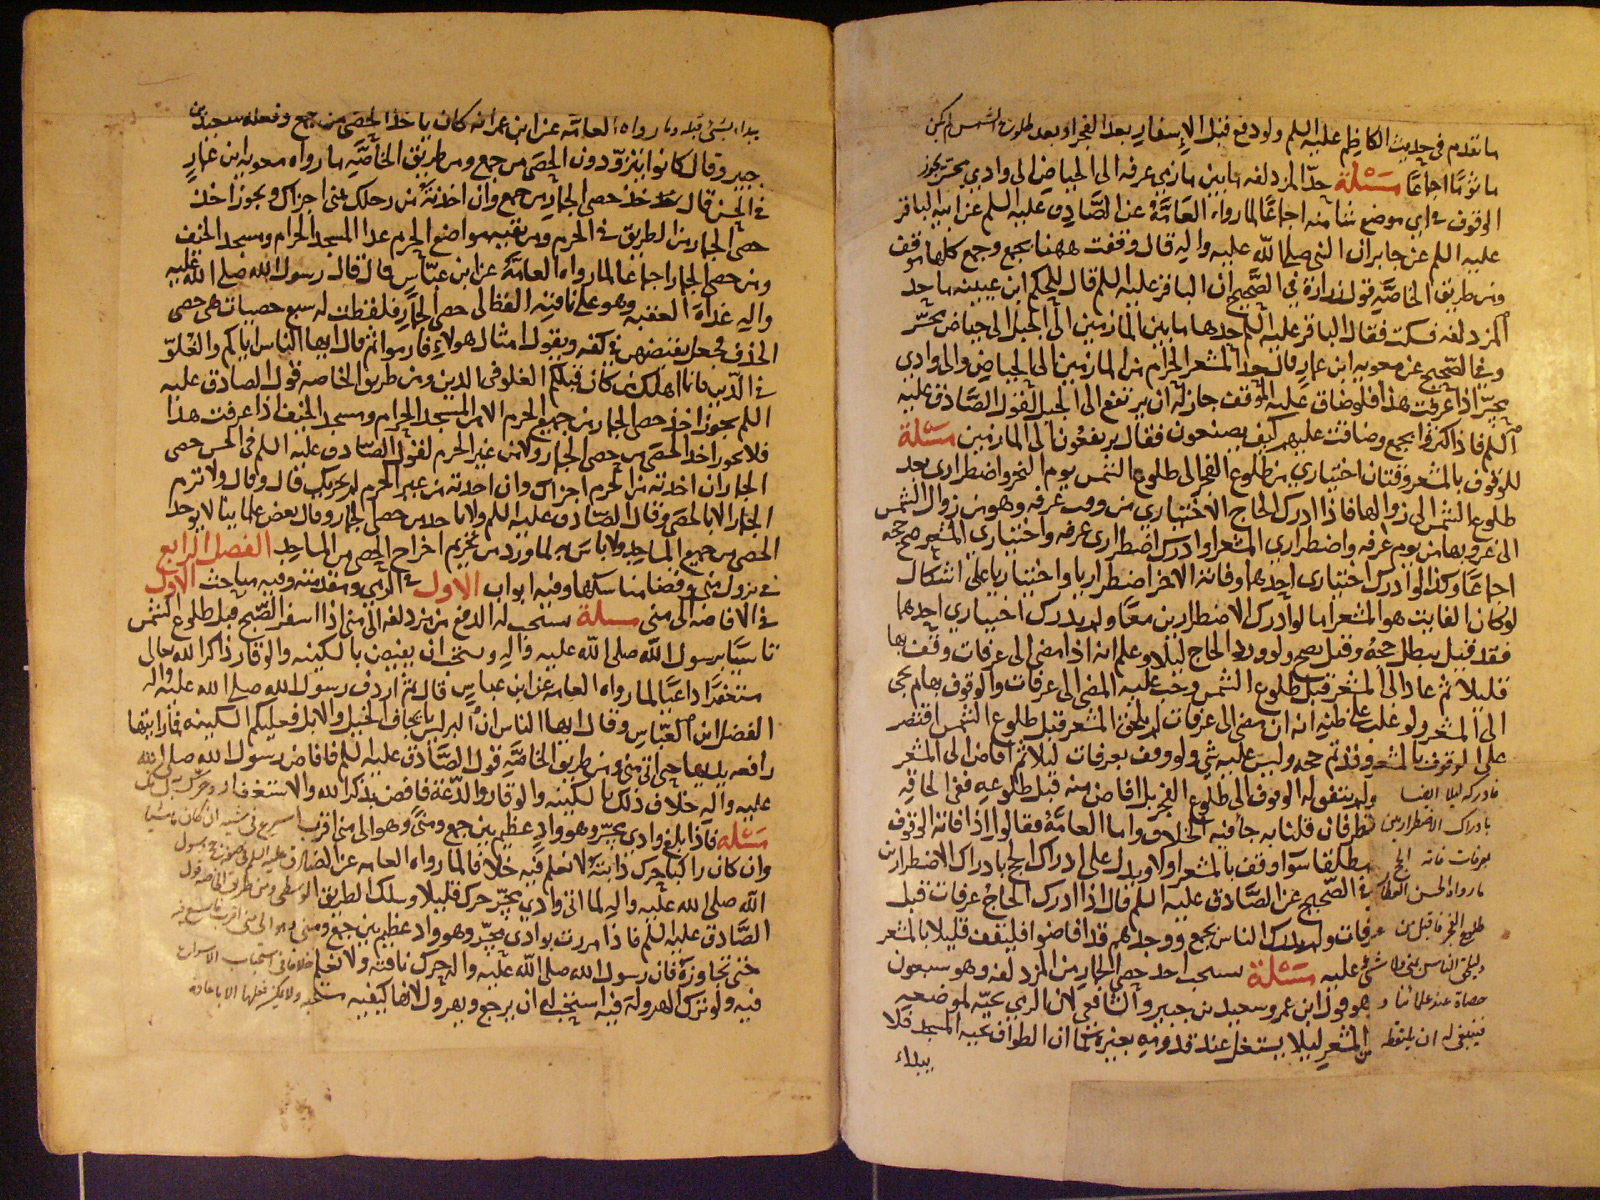 ما تقدم في حديث الكاظم عليه السلم ولو دفع قبل الاسفار بعد الفجر او بعد طلوع الشمس لم يكن
ماثوما اجماعا مسئلة حد المزدلفه ما بين مازمي عرفه الى الحياض الى وادي محسر يجوز
الوقوف في اي موضع شا منه اجماعا لما رواه العامة عن الصادق عليه السلم عن ابيه الباقر
عليه السلم عن جابر ان النبي صلى الله عليه واله قال وقفت ههنا بجمع وجمع كلها موقف
ومن طريق الخاصه قول زرارة في الصحيح ان الباقر عليه السلم قال للحكم ابن عيينه ما حد
المزدلفه فسكت فقال الباقر عليه السلم حدها ما بين المازمين الى الجبل الى حياض محسر
وفي الصحيح عن معويه ابن عمار قال حد المشعر الحرام من المازمين الى الحياض والى وادي
محسر اذا عرفت هذا فلو ضاق عليه الموقف جاز له ان يرتفع الى الجبل لقول الصادق عليه
السلم فاذا كثروا بجمع وضاقت عليهم كيف يصنعون فقال يرتفعون الى المازمين مسئلة
للوقوف بالمشعر وقتان اختياري من طلوع الفجر الى طلوع الشمس يوم النحر واضطراري بعد
طلوع الشمس الى زوالها فاذا ادرك الحاج الاختياري من وقت عرفه وهو من زوال الشمس
الى غروبها من يوم عرفه واضطراري المشعر او ادرك اضطراري عرفه واختياري المشعر صح حجه
اجماعا وكذا لو ادرك اختياري احدهما وفاته الاخر اضطراريا واختياريا على اشكال
لو كان الفايت هو المشعر اما لو ادرك الاضطرارين معا ولم يدرك اختياري احدهما
فقد قيل يبطل حجه وقيل يصح ولو ورد الحاج ليلا وعلم انه اذا مضى الى عرفات وقف بها
قليلا ثم عاد الى المشعر قبل طلوع الشمس وجب عليه المضي الى عرفات والوقوف بها ثم يجي
الى المشعر ولو غلب على ظنه انه ان مضى الى عرفات لم يلحق المشعر قبل طلوع الشمس اقتصر
على الوقوف بالمشعر وقد تم حجه وليس عليه شي ولو وقف بعرفات ليلا ثم افاض الى المشعر
فادركه ليلا ولم يتفق له الوقوف الى طلوع الفجر بل افاض منه قبل طلوعه ففي الحاقه
بادراك الاضطرارين نظر فان قلنا به جا فيه الخلاف واما العامة فقالوا اذا فاته الوقوف
بعرفات فاته الحج مطلقا سوا وقف بالمشعر اولا ويدل على ادراك الحج بادراك الاضطرارين
ما رواه الحسن العطار في الصحيح عن الصادق عليه السلم قال اذا ادرك الحاج عرفات قبل
طلوع الفجر فاقبل من عرفات ولم يدرك الناس بجمع ووجدهم قد افاضوا فليقف قليلا بالمشعر
وليلحق الناس بمنى ولا شي عليه مسئلة يستحب اخذ حصى الجمار من المزدلفه وهو سبعون
حصاة عند علمائنا و هو قول ابن عمر وسعيد بن جبير والشافعي لان الرمي تحية لموضعه
فينبغي له ان يلتقطه من المشعر ليلا يشتغل عند قدومه بغيره كما ان الطواف تحية المسجد فلا
يبداء
يبداء بشي قبله وما رواه العامة عن ابن عمر انه كان ياخذ الحصى من جمع وفعله سعيد بن
جبير وقال كانوا يتزودون الحصى من جمع ومن طريق الخاصه ما رواه معويه ابن عمار
في الحسن قال خذ حصى الجمار من جمع وان اخذته من رحلك بمنى اجزاك ويجوز اخذ
حصى الجمار من الطريق في الحرم ومن بقيه مواضع الحرم عدا المسجد الحرام ومسجد الخيف
ومن حصى الجمار اجماعا لما رواه العامة عن ابن عباس قال قال رسول الله صلى الله عليه
واله غداة العقبه وهو على ناقته القط لي حصى الجمار فلقطت له سبع حصيات هي حصى
الخذف فجعل يقبضهن في كفه ويقول امثال هولاء فارموا ثم قال ايها الناس اياكم والغلو
في الدين فانما اهلك من كان قبلكم الغلو في الدين ومن طريق الخاصه قول الصادق عليه
السلم يجوز اخذ حصى الجمار من جميع الحرم الا من المسجد الحرام ومسجد الخيف اذا عرفت هذا
فلا يجوز اخذ الحصى من حصى الجمار ولا من غير الحرم لقول الصادق عليه السلم في الحسن حصى
الجمار ان اخذته من الحرم اجزاك وان اخذته من غير الحرم لم يجزيك قال وقال ولا ترم
الجمار الا بالحصى وقال الصادق عليه السلم ولا ياخذ من حصى الجمار وقال بعض علمائنا لا يوخذ
الحصى من جميع المساجد ولا باس به لما ورد من تحريم اخراج الحصى من المساجد الفصل الرابع
في نزول منى وقضا مناسكها وفيه ابواب الاول في الرمي ومقدمته وفيه مباحث الاول
في الافاضه الى منى مسلة يستحب له الدفع من مزدلفه الى منى اذا اسفر الصبح قبل طلوع الشمس
تاسيا برسول الله صلى الله عليه واله ويستحب ان يفيض بالسكينه والوقار ذاكرا لله تعالى
مستغفرا داعيا لما رواه العامه عن ابن عباس قال ثم اردف رسول الله صلى الله عليه واله
الفضل ابن العباس وقال ايها الناس ان البر ليس بايجاف الخيل والابل فعليكم السكينه فما رايتها
رافعه يديها حتى اتى منى ومن طريق الخاصه قول الصادق عليه السلم فافاض رسول الله صلى الله
عليه واله خلاف ذلك بالسكينه والوقار والدعة فافض بذكر الله والاستغفار
مسئله فاذا بلغ وادي محسر وهو واد عظيم بين جمع ومنى وهو الى منى اقرب اسرع في مشيه ان كان ماشيا
وان كان راكبا حرك دابته ولا نعلم فيه خلافا لما رواه العامه عن الصادق عليه السلم في صفة حج رسول
الله صلى الله عليه واله لما اتى وادي محسر حرك قليلا وسلك الطريق الوسطى ومن طريق الخاصه قول
الصادق عليه السلم فاذا مررت بوادي محسر وهو واد عظيم بين جمع ومنى وهو الى منى اقرب فاسع فيه
حتى تجاوزه فان رسول الله صلى الله عليه واله حرك ناقته ولا نعلم خلافا في استحباب الاسراع
فيه ولو ترك الهرولة فيه استحب له ان يرجع ويهرول لانها كيفيه مستحبه ولا يمكن فعلها الا باعادة